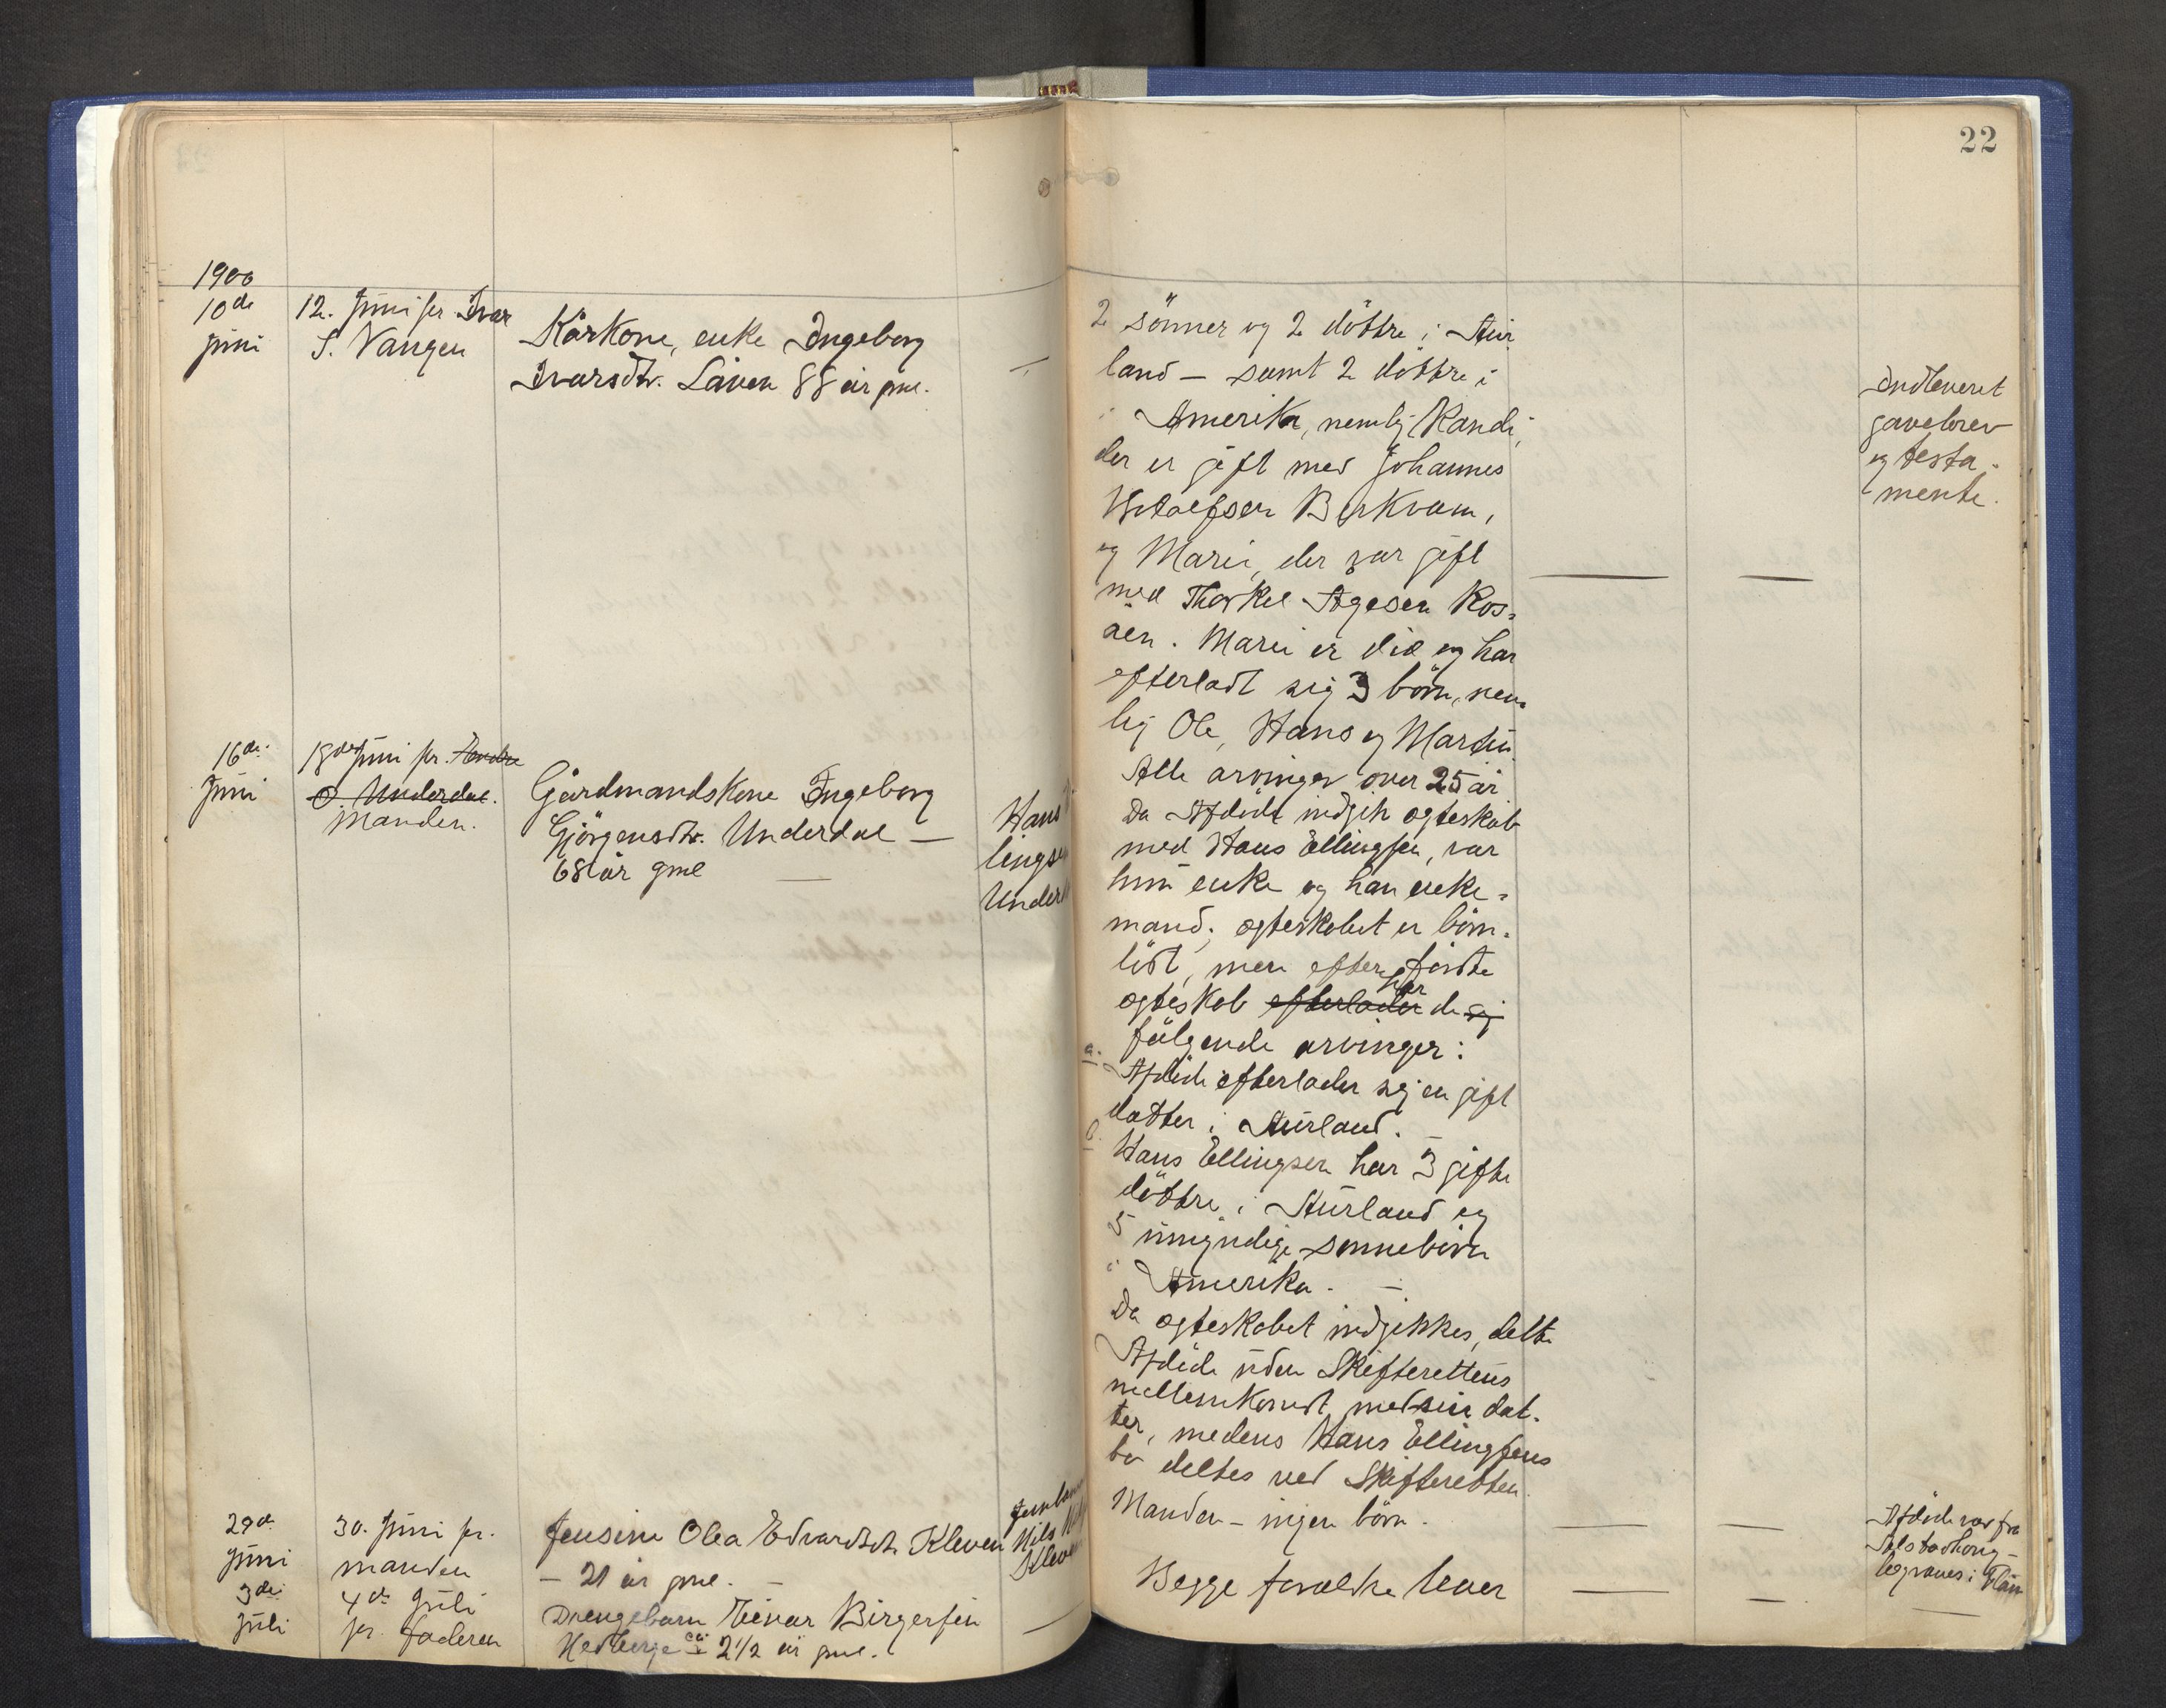 22
1900
10de
juni
12. Juni pr. Ivar
S. Vangen
Kårkone, enke Ingeborg
Ivarsdtr. Låven 88 år gml.
—
2 sönner og 2 döttre i Aur
land — samt 2 döttre i
Amerika, nemlig Randi,
der er gift med Johannes
Berkvam,
og Mari, der var gift
med Thorkel Agesen Kos=
aen. Mari er död og har
efterladt sig 3 börn, nem=
lig Ole, Hans og Martin.
Alle arvinger over 25 år
—
—
Indleveret
gavebrev
og testa-
mente.
16de
Juni
18de Juni pr. Andre
O. Underdal.
Manden.
Gårdmandskone Ingeborg
Gjörgensdtr. Underdal —
68 år gml —
Hans
lingse
Under
Da Afdöde indgik ogteskab
med Hans Ellingsen, var
hun enke og han enke=
mand; ogteskabet er börn=
löst, men efter förste
ogteskab efterlader har de sig
fölgende arvinger:
a. Afdöde efterlader sig en gift
datter i Aurland. —
b. Hans Ellingsen har 3 gifte
döttre i Aurland og
5 umyndige sönnebörn
i Amerika. —
Da ogteskabet indgikkes, delte
Afdöde uden Skifterettens
mellemkomst med sin dat=
ter, medens Hans Ellingsens
bo deltes ved Skifteretten.
29de
juni
30. Juni pr.
manden
Jensine Olea Edvardsdtr. Kleven
— 21 år gml. —
Nils
Kleve
Manden — ingen börn.
—
—
Afdöde var fra
begraves i Flåm
3de
juli
4de Juli
pr. faderen
Drengebarn Einar Birgersen
Hedberg ca: 2 1/2 år gml.
—
Begge foreldre lever
—
—
—